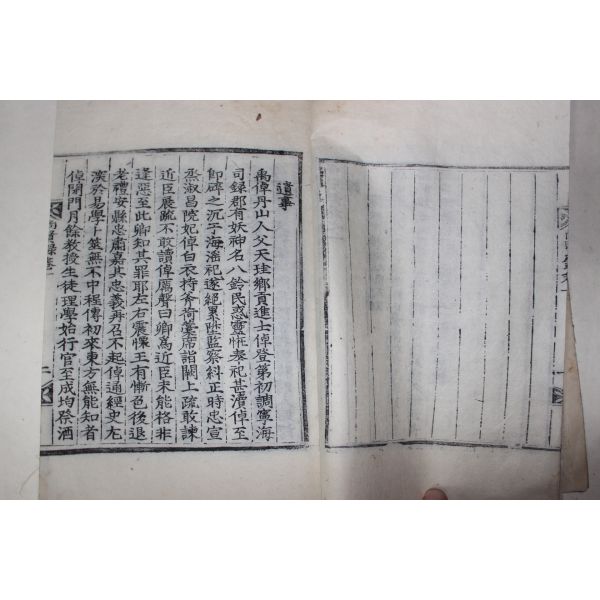 遺事
禹倬丹山人父天珪鄕貢進士倬登第初調寧海
司錄郡有妖神名八鈴民惑靈恠奉祀甚瀆倬至
卽碎之沉于海滛祀遂絶累陞監察糾正時忠宣
烝淑昌院妃倬白衣持斧荷藁席詣闕上疏敢諫
近臣展疏不敢讀倬厲聲曰卿爲近臣未能格非
逢惡至此卿知其罪耶左右震慄王有慚色後退
老禮安縣忠肅嘉其忠義再召不起倬通經史尤
深於易學卜筮無不中程傳初來東方無能知者
倬閉門月餘教授生徒理學始行官至成均祭酒
尚賢錄卷一
二